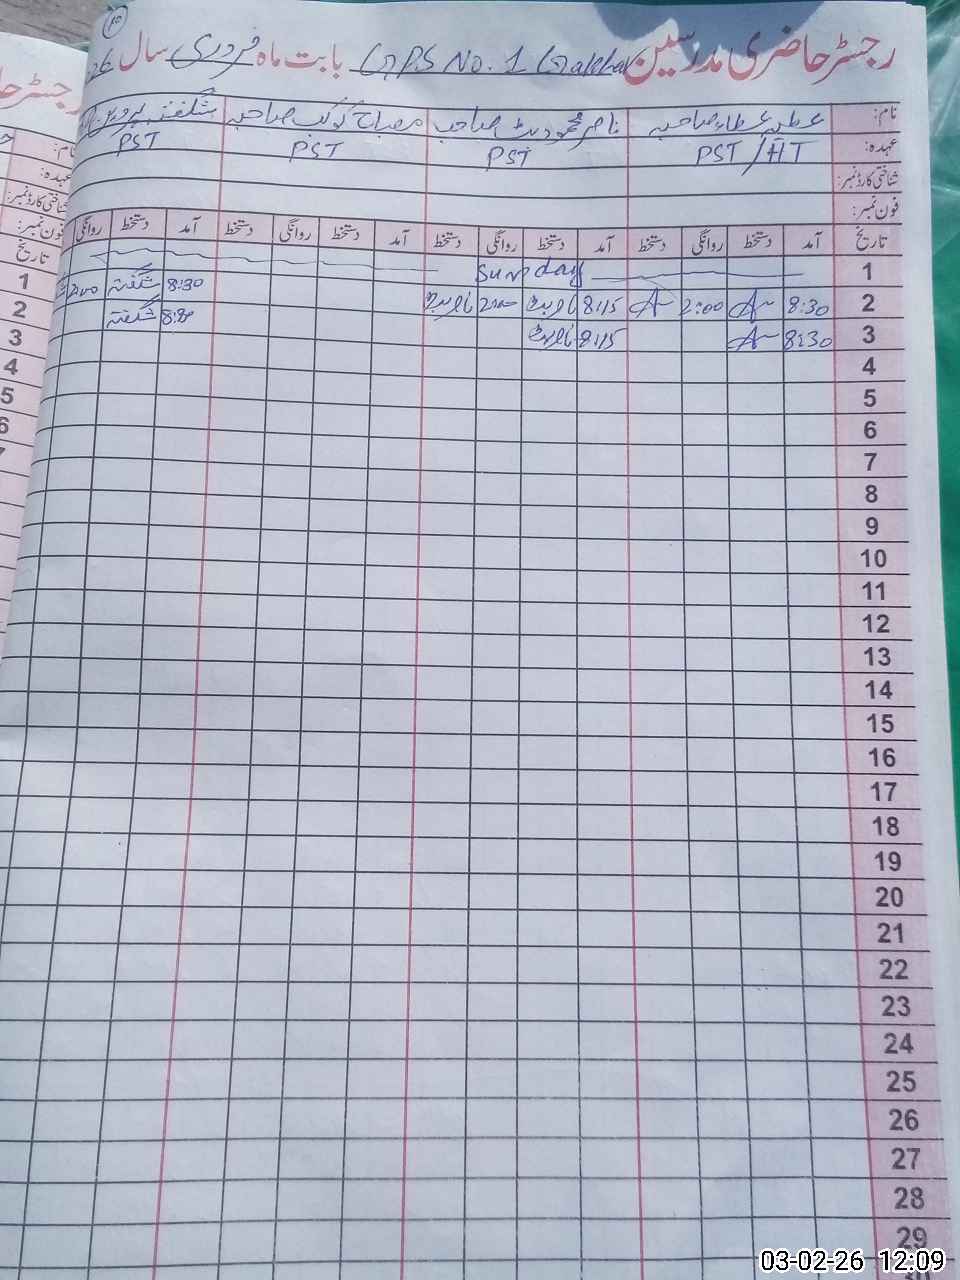 رجسٹر حاضری مدرسین GPS No. 1 بابت ماہ فروری سال 26
نام: عطیہ عطاء صاحبہ ناصر محمود بٹ صاحب مصباح کوکب صاحبہ شگفتہ پروین
عہدہ: PST/HT PST PST PST
شناختی کارڈ نمبر:
فون نمبر:
تاریخ آمد دستخط روانگی دستخط آمد دستخط روانگی دستخط آمد دستخط روانگی دستخط آمد دستخط روانگی
1 Sunday
2 8:30 2:00 8:15 2:00 8:30 شگفتہ 2:00
3 8:30 8:15 8:30 شگفتہ
4
5
6
7
8
9
10
11
12
13
14
15
16
17
18
19
20
21
22
23
24
25
26
27
28
29
رجسٹر حا
نام:
عہدہ:
شناختی کارڈ نمبر:
فون نمبر:
تاریخ
1
2
3
4
5
6
7
03-02-26 12:09